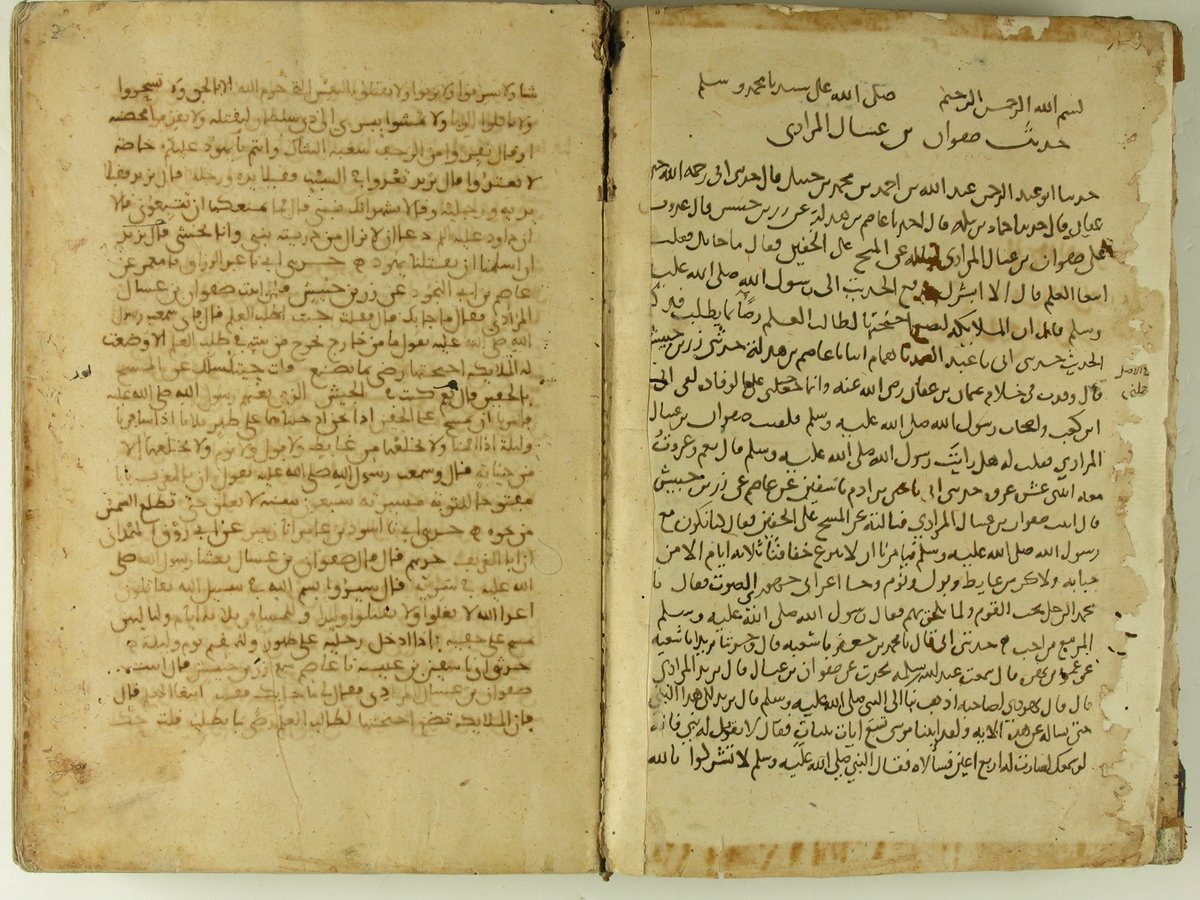 بسم الله الرحمن الرحيم صلى الله على سيدنا محمد وسلم
حديث صفوان بن عسال المرادي
حدثنا ابو عبد الرحمن عبد الله بن احمد بن محمد بن حنبل قال حدثني ابي رحمه الله
عفان قال حدثنا حماد بن سلمه قال اخبرنا عاصم بن بهدلة عن زر بن حبيش قال غدوت
على صفوان بن عسال المرادي اسله عن المسح على الخفين فقال ما جا بك فقلت
ابتغا العلم قال الا ابشرك ورفع الحديث الى رسول الله صلى الله عليه
وسلم قال ان الملائكة لتضع اجنحتها لطالب العلم رضا بما يطلب فذكر
الحديث حدثني ابي نا عبد الصمد نا همام انبا نا عاصم بن بهدلة حدثني زر بن حبيش
قال وفدت في خلافة عثمان بن عفان رضي الله عنه وانما حملني على الوفادة لقي ابي
ابن كعب واصحاب رسول الله صلى الله عليه وسلم فلقيت صفوان بن عسال
المرادي فقلت له هل رايت رسول الله صلى الله عليه وسلم قال نعم وغزوت
معه اثنتي عشر غزوة حدثني ابي نا يحيى بن ادم نا سفين عن عاصم عن زر بن حبيش
قال اتيت صفوان بن عسال المرادي فسالته عن المسح على الخفين فقال كنا نكون مع
رسول الله صلى الله عليه وسلم فيامرنا ان لا ننزع خفافنا ثلاثة ايام الا من
جنابه ولاكن من غايط وبول ونوم وجا اعرابي جهوري الصوت فقال يا
محمد الرجل يحب القوم ولما يلحق بهم فقال رسول الله صلى الله عليه وسلم
المر مع من احب حدثني ابي قال نا محمد بن جعفر نا شعبه قال وحدثنا يزيد انا شعبه
عن عمرو بن مره قال سمعت عبد الله بن سلمه يحدث عن صفوان بن عسال قال يزيد المرادي
قال قال يهودي لصاحبه اذهب بنا الى النبي صلى الله عليه وسلم قال يزيد الى هذا النبي
حتى نساله عن هذه الايه ولقد اتينا موسى تسع ايات بينات فقال لا تقل له نبي فانه
لو سمعك لصارت له اربع اعين فسالاه فقال النبي صلى الله عليه وسلم لا تشركوا بالله
شيا ولا تسرقوا ولا تزنوا ولا تقتلوا النفس التي حرم الله الا بالحق ولا تسحروا
ولا تاكلوا الربا ولا تمشوا ببري الى ذي سلطان ليقتله ولا تقذفوا محصنه
او قال تفروا من الزحف شعبه الشاك وانتم يا يهود عليكم خاصة
لا تعتدوا قال يزيد تعدوا في السبت فقبلا يده ورجله قال يزيد فقبلا
يديه ورجليه وقالا نشهد انك نبي قال فما يمنعكما ان تتبعوني قالا
ان داود عليه السلام دعا ان لا يزال من ذريته نبي وانا نخشى قال يزيد
ان اسلمنا ان تقتلنا يهود حدثني ابي نا عبد الرزاق نا معمر عن
عاصم بن ابي النجود عن زر بن حبيش قال اتيت صفوان بن عسال
المرادي فقال ما جا بك قال فقلت جيت اطلب العلم قال فاني سمعت رسول
الله صلى الله عليه يقول ما من خارج يخرج من بيته في طلب العلم الا وضعت
له الملايكة اجنحتها رضى بما يصنع قال جيت اسلك عن المسح
بالخفين قال نعم كنت في الجيش الذين بعثهم رسول الله صلى الله عليه
فامرنا ان نمسح على الخفين اذا نحن ادخلناهما على طهر ثلاثا اذا سافرنا
وليلة اذا اقمنا ولا نخلعهما من غايط ولا بول ولا نوم ولا نخلعهما الا
من جنابة قال وسمعت رسول الله صلى الله عليه يقول ان بالمغرب بابا
مفتوحا للتوبه مسيرته سبعون سنه لا يغلق حتى تطلع الشمس
من نحوه حدثني ابي نا اسود بن عامر انا زهير عن ابي روق الهمداني
ان ابا الغريف حدثهم قال قال صفوان بن عسال بعثنا رسول الله صلى
الله عليه في سريه قال سيروا بسم الله في سبيل الله تقاتلون
اعدا الله لا تغلوا ولا تقتلوا وليدا وللمسافر ثلاثة ايام ولياليهن
يمسح على خفيه اذا ادخل رجليه على طهور وللمقيم يوم وليلة
حدثني ابي نا سفين بن عيينه نا عاصم سمع زر بن حبيش قال اتيت
صفوان بن عسال المرادي فقال ما جا بك فقلت ابتغا العلم قال
فان الملايكة تضع اجنحتها لطالب العلم رضى بما يطلب قلت حك